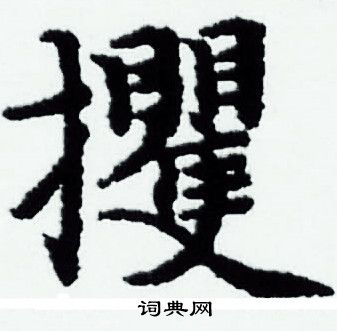 攫
词典网